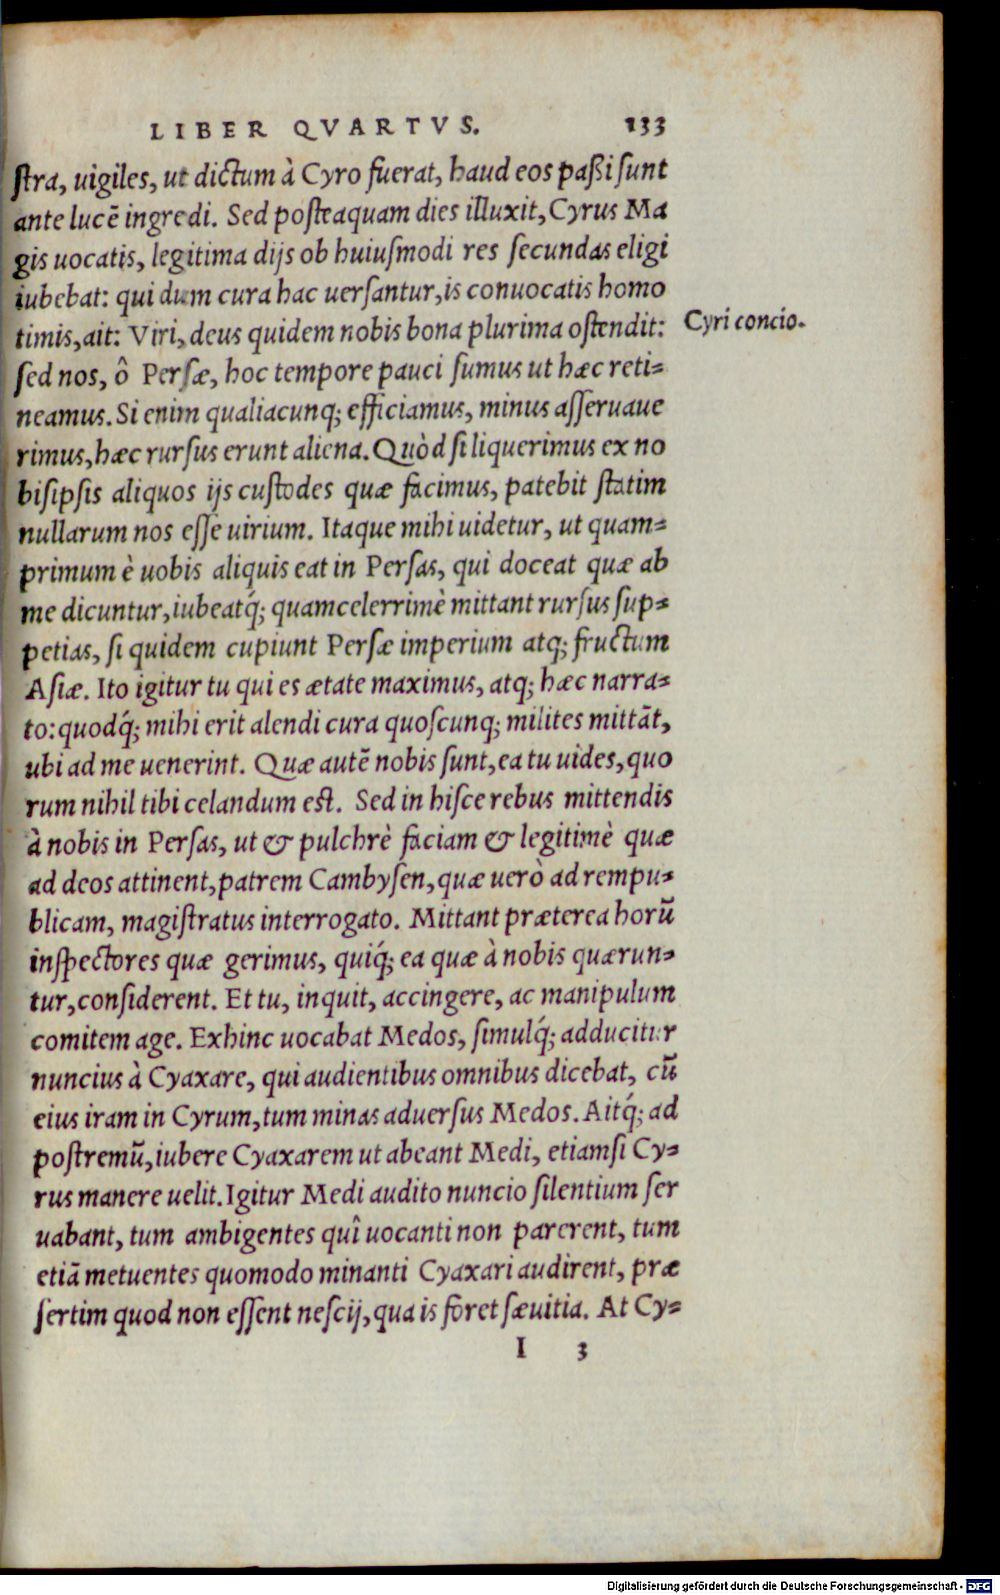 LIBER QVARTVS. 133
ſtra, uigiles, ut dictum à Cyro fuerat, haud eos paßi ſunt
ante lucē ingredi. Sed poſteaquam dies illuxit, Cyrus Ma
gis uocatis, legitima dijs ob huiuſmodi res ſecundas eligi
iubebat: qui dum cura hac uerſantur, is conuocatis homo
timis, ait: Viri, deus quidem nobis bona plurima oſtendit:
Cyri concio.
ſed nos, ô Perſæ, hoc tempore pauci ſumus ut hæc reti-
neamus. Si enim qualiacunq; efficiamus, minus aſſeruaue
rimus, hæc rurſus erunt aliena. Quòd ſi liquerimus ex no
biſipſis aliquos ijs cuſtodes quæ facimus, patebit ſtatim
nullarum nos eſſe uirium. Itaque mihi uidetur, ut quam-
primum è uobis aliquis eat in Perſas, qui doceat quæ ab
me dicuntur, iubeatq́; quamcelerrimè mittant rurſus ſup-
petias, ſi quidem cupiunt Perſæ imperium atq; fructum
Aſiæ. Ito igitur tu qui es ætate maximus, atq; hæc narra-
to: quodq́; mihi erit alendi cura quoſcunq; milites mittāt,
ubi ad me uenerint. Quæ autē nobis ſunt, ea tu uides, quo
rum nihil tibi celandum eſt. Sed in hiſce rebus mittendis
à nobis in Perſas, ut & pulchrè faciam & legitimè quæ
ad deos attinent, patrem Cambyſen, quæ uerò ad rempu-
blicam, magiſtratus interrogato. Mittant præterea horū
inſpectores quæ gerimus, quiq́; ea quæ à nobis quærun-
tur, conſiderent. Et tu, inquit, accingere, ac manipulum
comitem age. Exhinc uocabat Medos, ſimulq́; adducitur
nuncius à Cyaxare, qui audientibus omnibus dicebat, cū
eius iram in Cyrum, tum minas aduerſus Medos. Aitq́; ad
poſtremū, iubere Cyaxarem ut abeant Medi, etiamſi Cy-
rus manere uelit. Igitur Medi audito nuncio ſilentium ſer
uabant, tum ambigentes quî uocanti non parerent, tum
etiā metuentes quomodo minanti Cyaxari audirent, præ
ſertim quod non eſſent neſcij, qua is foret ſæuitia. At Cy-
I 3
Digitalisierung gefördert durch die Deutsche Forschungsgemeinschaft - DFG